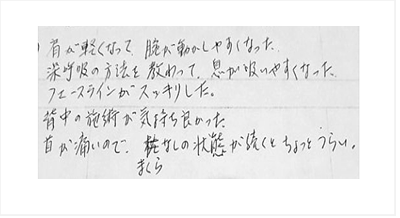 肩が軽くなって、腕が動かしやすくなった。
深呼吸の方法を教わって、息が吸いやすくなった。
フェースラインがスッキリした。
背中の施術が気持ち良かった。
首が痛いので、枕なしの状態が続くとちょっとうらい。
まくら